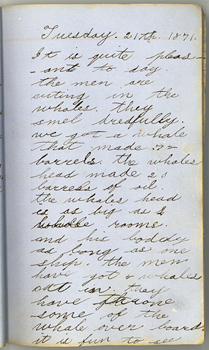 Tuesday. 21th. 1871.
It is quite pleas-
-ant to day
the men are
cuting in the
whales. they
smel dredfully.
we got a whale
that made
barrels. the whales
head made 20
barress of oil.
the whales head
is as big as
rooms.
and his boddy
as long as one
ship. the men
have got whales
in. they
have throne
some of the
whale over board
it is fun to see